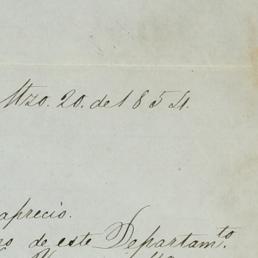 Mzo. 20. de 1854.
aprecio.
de este Departamto.